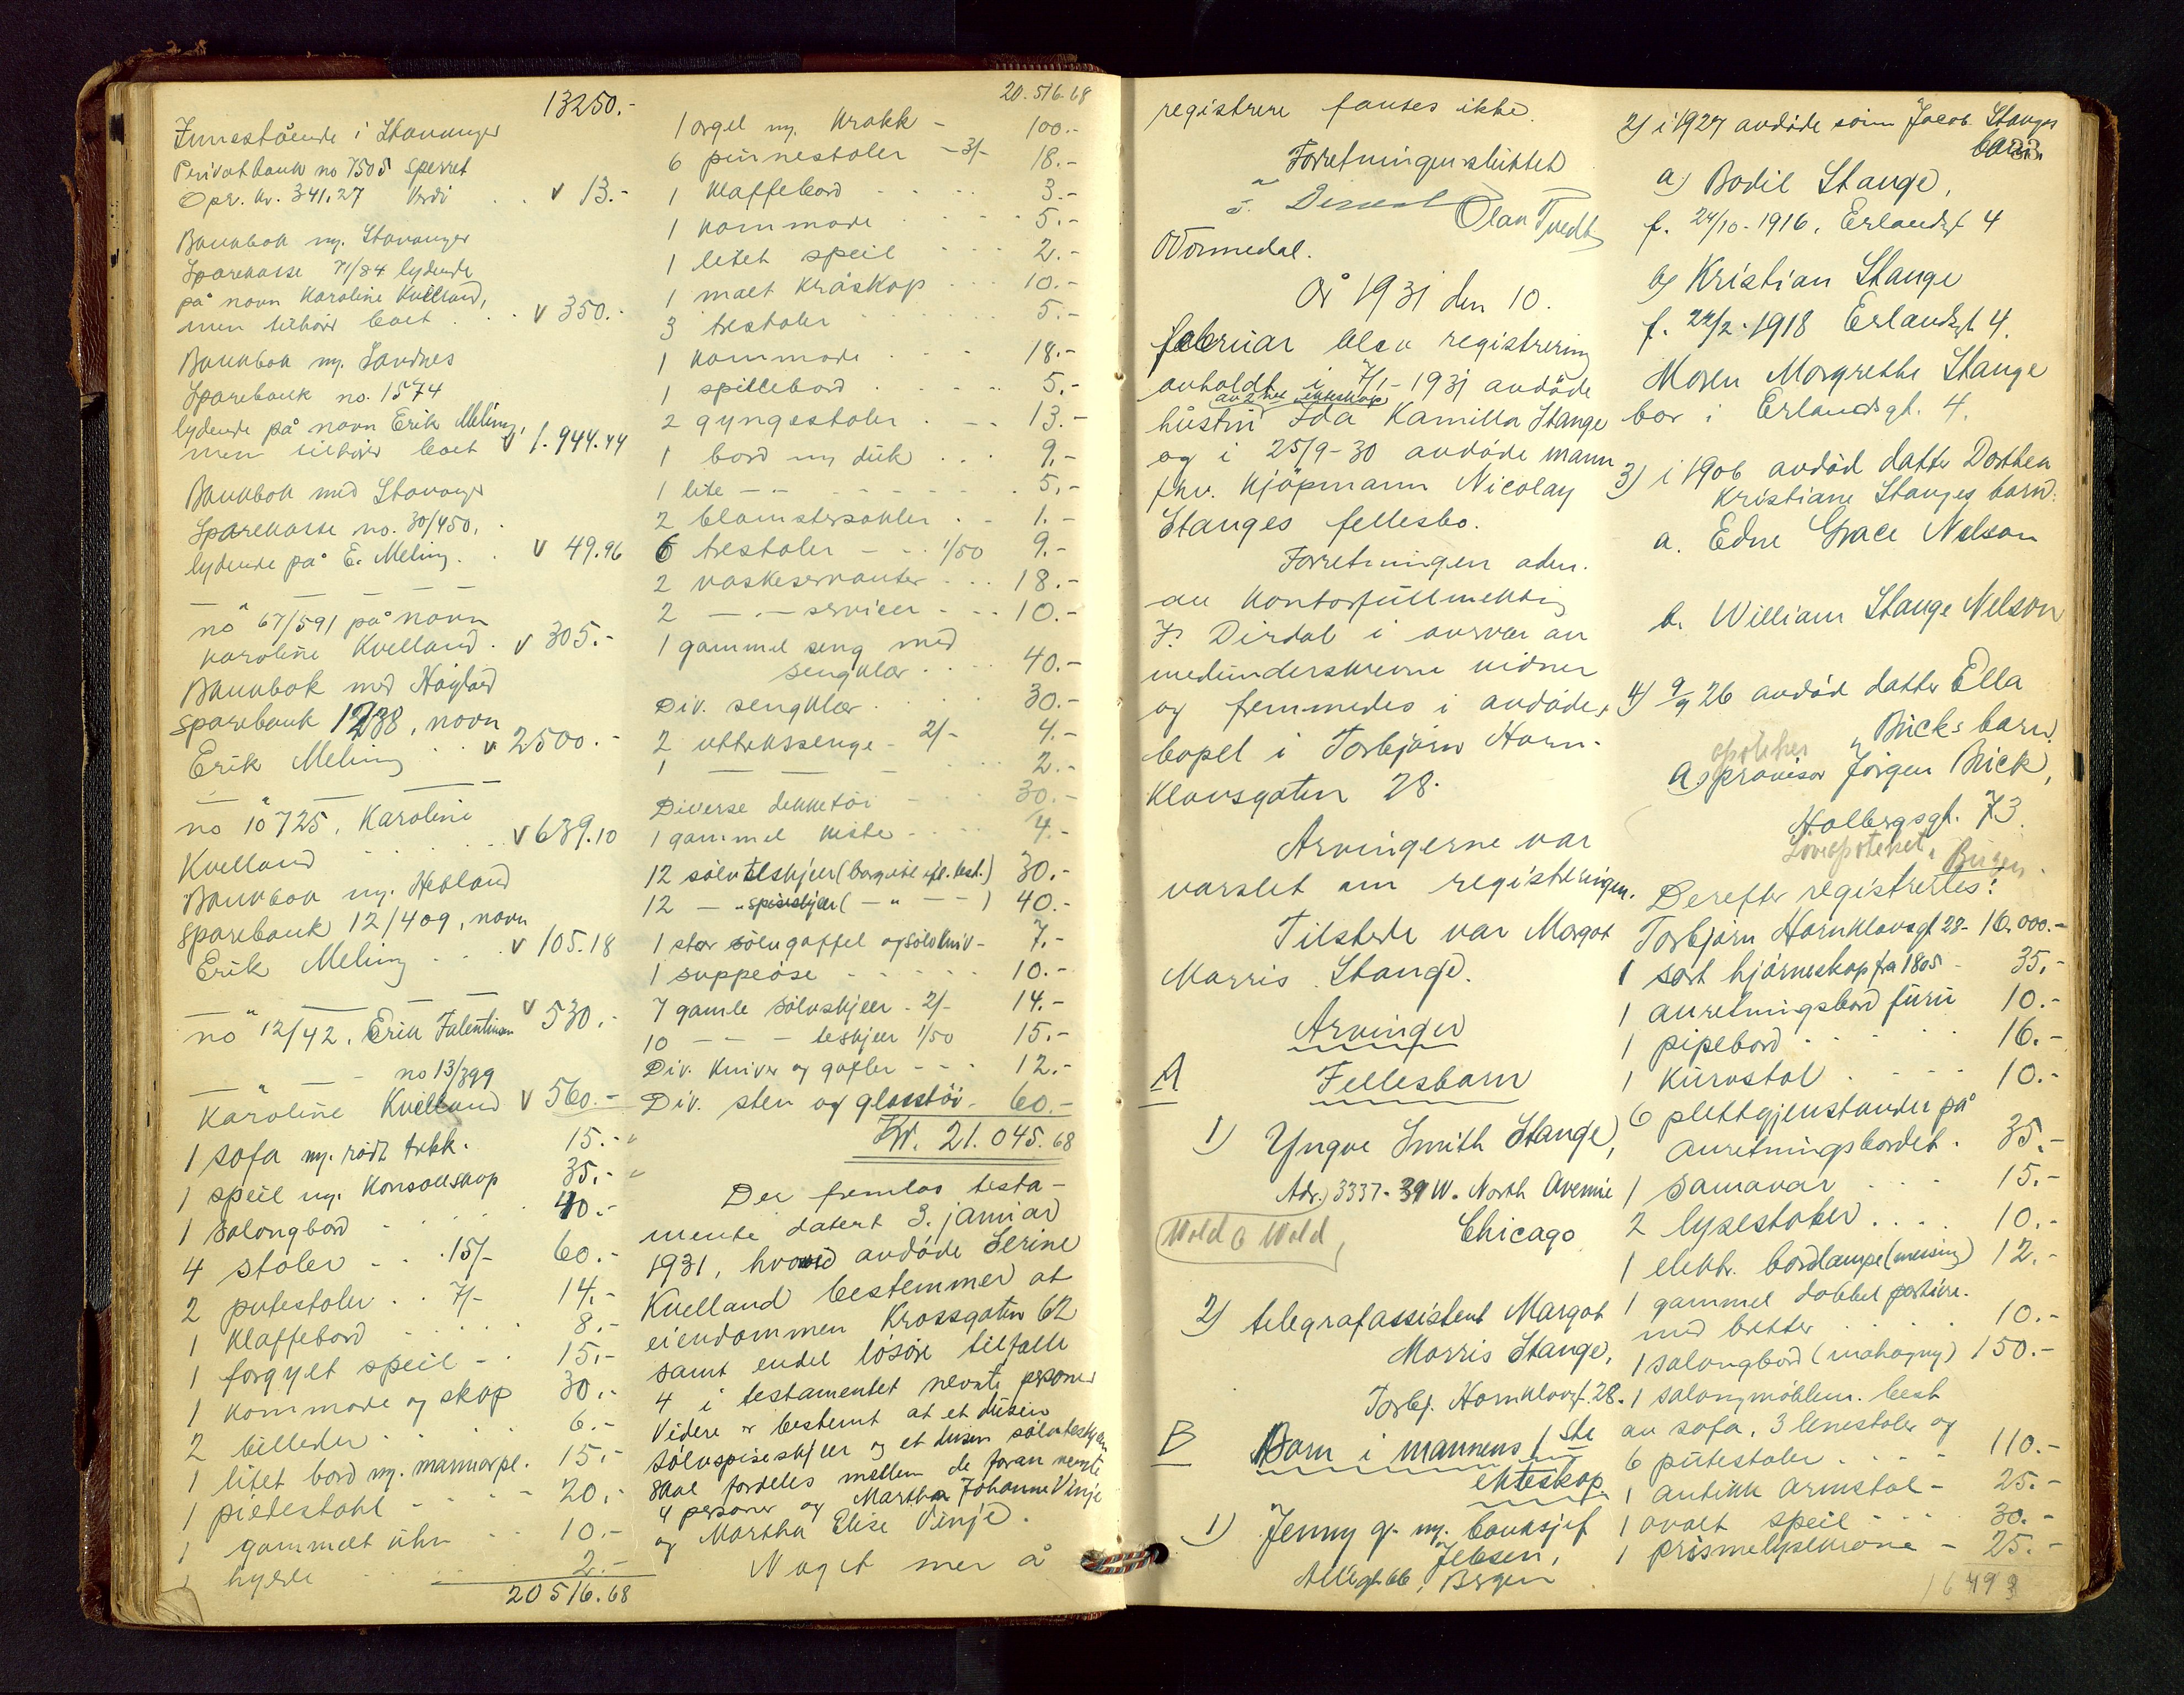 13250.-
Innestående i Stavanger
Privatbank no 7505 sperret
Opr. kr. 341.27 Verdi . . v 13.-
Bankbok m. Stavanger
Sparekasse 71/84 lydende
på navn Karoline Kvelland,
men tilhører boet . . . v 350.-
Bankbok m. Sandnes
Sparebank no. 1574
lydende på navn Erik Meling,
men tilhører boet v 1.944.44
Bankbok med Stavanger
Sparekasse no. 30/450,
lydende på E. Meling . . v 49.96
— " —
no 67/591 på navn
Karoline Kvelland . v 305.-
Bankbok med Høyland
sparebank 1238, navn
Erik Meling . . v 2500.-
— " — —
no 10725, Karoline
Kvelland . . . v 639.10
Bankbok m. Hetland
sparebank 12/409, navn
Erik Meling . . . v 105.18
— " — —
no 12/42, Erik Falentinsen v 530.-
— " — - no 13/399
Karoline Kvelland v 560.-
1 sofa m. rødt trekk. 15.-
1 speil m. konsollskap 35.-
1 salongbord . . . 40.-
4 stoler . . 15/- 60.-
2 putestoler . . 7/- 14.-
1 klaffebord . . . . 8.-
1 forgylt speil - . 15.-
1 kommode og skap 30.-
2 billeder . . . . 6.-
1 litet bord m. marmorpl. 15.-
1 piedestahl - - - - 20.-
1 gammelt uhr - - 10.-
1 hylde . . . . 2.-
20516.68
20.516.68
1 orgel m. krakk - 100.-
6 pinnestoler - 3/- 18.-
1 klaffebord - - - - 3.-
1 kommode . . . . 5.-
1 litet speil - - - 2.-
1 malt kråskap . . . 10.-
3 trestoler . . . . . 5.-
1 kommode . . . . 18.-
1 spillebord . . . . . 5.-
2 gyngestoler . - - 13.-
1 bord m. duk . . . 9.-
1 lite - - - - - - - 5.-
2 blomstersokler . . 1.-
6 trestoler - - . 1/50 9.-
2 vaskeservanter . . . 18.-
2 — " — servicer - . . 10.-
1 gammel seng med
sengklær . . . . 40.-
Div. sengklær . . . . 30.-
2 uttrekssenge - 2/- 4.-
1 — — - . . . 2.-
Diverse dekketøi - . . 30.-
1 gammel kiste - . . . 4.-
12 sølvteskjeer (borgitt ifl. test.) 30.-
12 — " spiseskjeer ( — " — — ) 40.-
1 stor sølvgaffel og sølvkniv - 7.-
1 suppeøse - - - - - 10.-
7 gamle sølvskjeer - 2/- 14.-
10 — — - teskjeer 1/50 15.-
Div. kniver og gafler - - - 12.-
Div. sten og glasstøi - 60.-
Kr. 21.045.68
Der fremlas testa-
mente datert 3. januar
1931, hvorved avdøde Serine
Kvelland bestemmer at
eiendommen Krossgaten 62
samt endel løsøre tilfalle
4 i testamentet nevnte personer
Videre er bestemt at et dusin
sølvspiseskjeer og et dusin sølvteskjeer
skal fordeles mellem de foran nevnte
4 personer og Martha Johanne Vinje
og Martha Elise Vinje.
Noget mer å
registrere fantes ikke.
Forretningen sluttet
J. Dirdal Olav Tvedt
O Tormedal.
År 1931 den 10.
februar blev registrering
avholdt i 7/1-1931 avdøde
av 2net ekteskap
hustru Ida Kamilla Stange
og i 25/9-30 avdøde mann
fhv. kjøpmann Nicolay
Stanges fellesbo.
Forretningen adm.
av kontorfullmektig
J. Dirdal i nærvær av
medunderskrevne vidner
og fremmedes i avdødes
bopel i Torbjørn Horn-
klovsgaten 28.
Arvingerne var
varslet om registreringen.
Tilstede var Margot
Morris Stange.
Arvinger
A Fellesbarn
1) Yngve Smith Stange,
Adr.) 3337-39 W. North Avenue
Chicago
Wold & Wold,
2) telegrafassistent Margot
Morris Stange,
Torbj. Hornklovsgt. 28.
B Barn i mannens 1ste
ekteskap
1) Jenny g. m. banksjef
Jebsen,
Allégt. 66, Bergen
2) i 1927 avdøde sønn Jacob Stanges
barn
a) Bodil Stange,
f. 24/10-1916, Erlandsgt 4
b) Kristian Stange
f. 22/2-1918 Erlandsgt 4.
Moren Margrethe Stange
bor i Erlandsgt. 4.
3) i 1906 avdød datter Dorthea
Kristiane Stanges barn:
a. Edne Grace Nelson
b. William Stange Nelson
4) 9/9 26 avdød datter Ella
Bricks barn.
apoteker
a) provisor Jørgen Brick,
Holbergsgt. 73
Løveapoteket, Bergen.
Derefter registrertes:
Torbjørn Hornklovsgt 28 - 16.000.-
1 sort hjørneskap fra 1805 - 35.-
1 anretningsbord furu 10.-
1 pipebord . . . . 16.-
1 kurvstol . . . . 10.-
6 plettgjenstander på
anretningsbordet . 35.-
1 samovar . . . . 15.-
2 lysestaker . . . . 10.-
1 elektr. bordlampe (messing) 12.-
1 gammel dobbel portiere.
med bretter . . . . 10.-
1 salongbord (mahogny) 150.-
1 salongmøblem. best
av sofa, 3 lenestoler og
6 putestoler . . . . 110.-
1 antikk armstol - 25.-
1 ovalt speil - - - 30.-
1 prismelysekrone - 25.-
16493